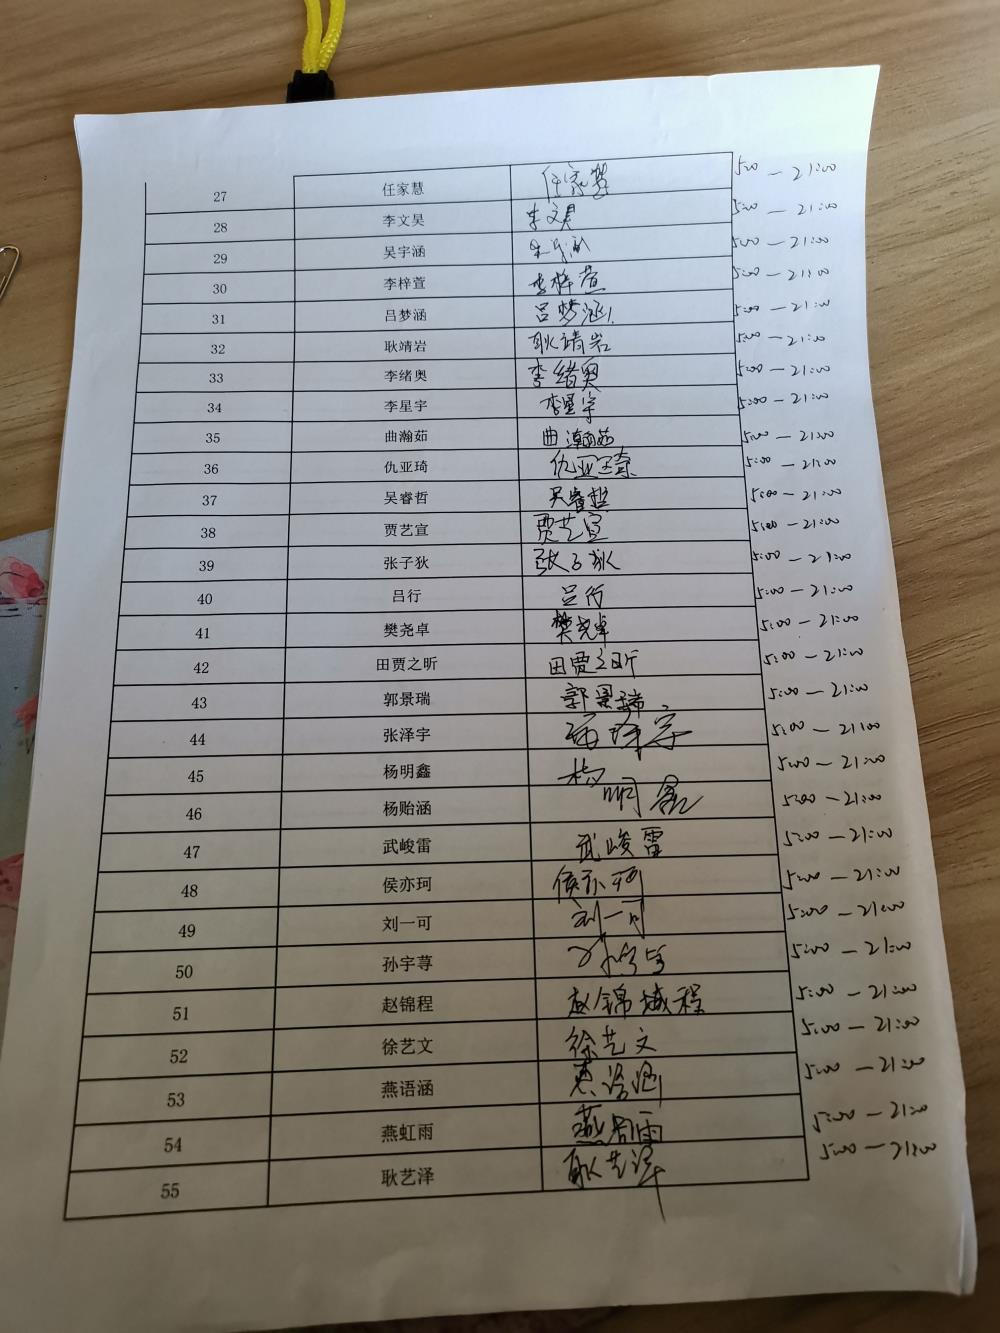 27 任家慧 任家慧 5:00 — 21:00
28 李文昊 李文昊 5:00 — 21:00
29 吴宇涵 5:00 — 21:00
30 李梓萱 李梓萱 5:00 — 21:00
31 吕梦涵 吕梦涵 5:00 — 21:00
32 耿靖岩 耿靖岩 5:00 — 21:00
33 李绪奥 李绪奥 5:00 — 21:00
34 李星宇 李星宇 5:00 — 21:00
35 曲瀚茹 曲瀚茹 5:00 — 21:00
36 仇亚琦 仇亚琦 5:00 — 21:00
37 吴睿哲 吴睿哲 5:00 — 21:00
38 贾艺宣 贾艺宣 5:00 — 21:00
39 张子狄 张子狄 5:00 — 21:00
40 吕行 吕行 5:00 — 21:00
41 樊尧卓 樊尧卓 5:00 — 21:00
42 田贾之昕 田贾之昕 5:00 — 21:00
43 郭景瑞 郭景瑞 5:00 — 21:00
44 张泽宇 5:00 — 21:00
45 杨明鑫 杨明鑫 5:00 — 21:00
46 杨贻涵 5:00 — 21:00
47 武峻雷 武峻雷 5:00 — 21:00
48 侯亦珂 侯亦珂 5:00 — 21:00
49 刘一可 刘一可 5:00 — 21:00
50 孙宇荨 5:00 — 21:00
51 赵锦程 赵锦城程 5:00 — 21:00
52 徐艺文 徐艺文 5:00 — 21:00
53 燕语涵 5:00 — 21:00
54 燕虹雨 5:00 — 21:00
55 耿艺泽 耿艺泽 5:00 — 21:00